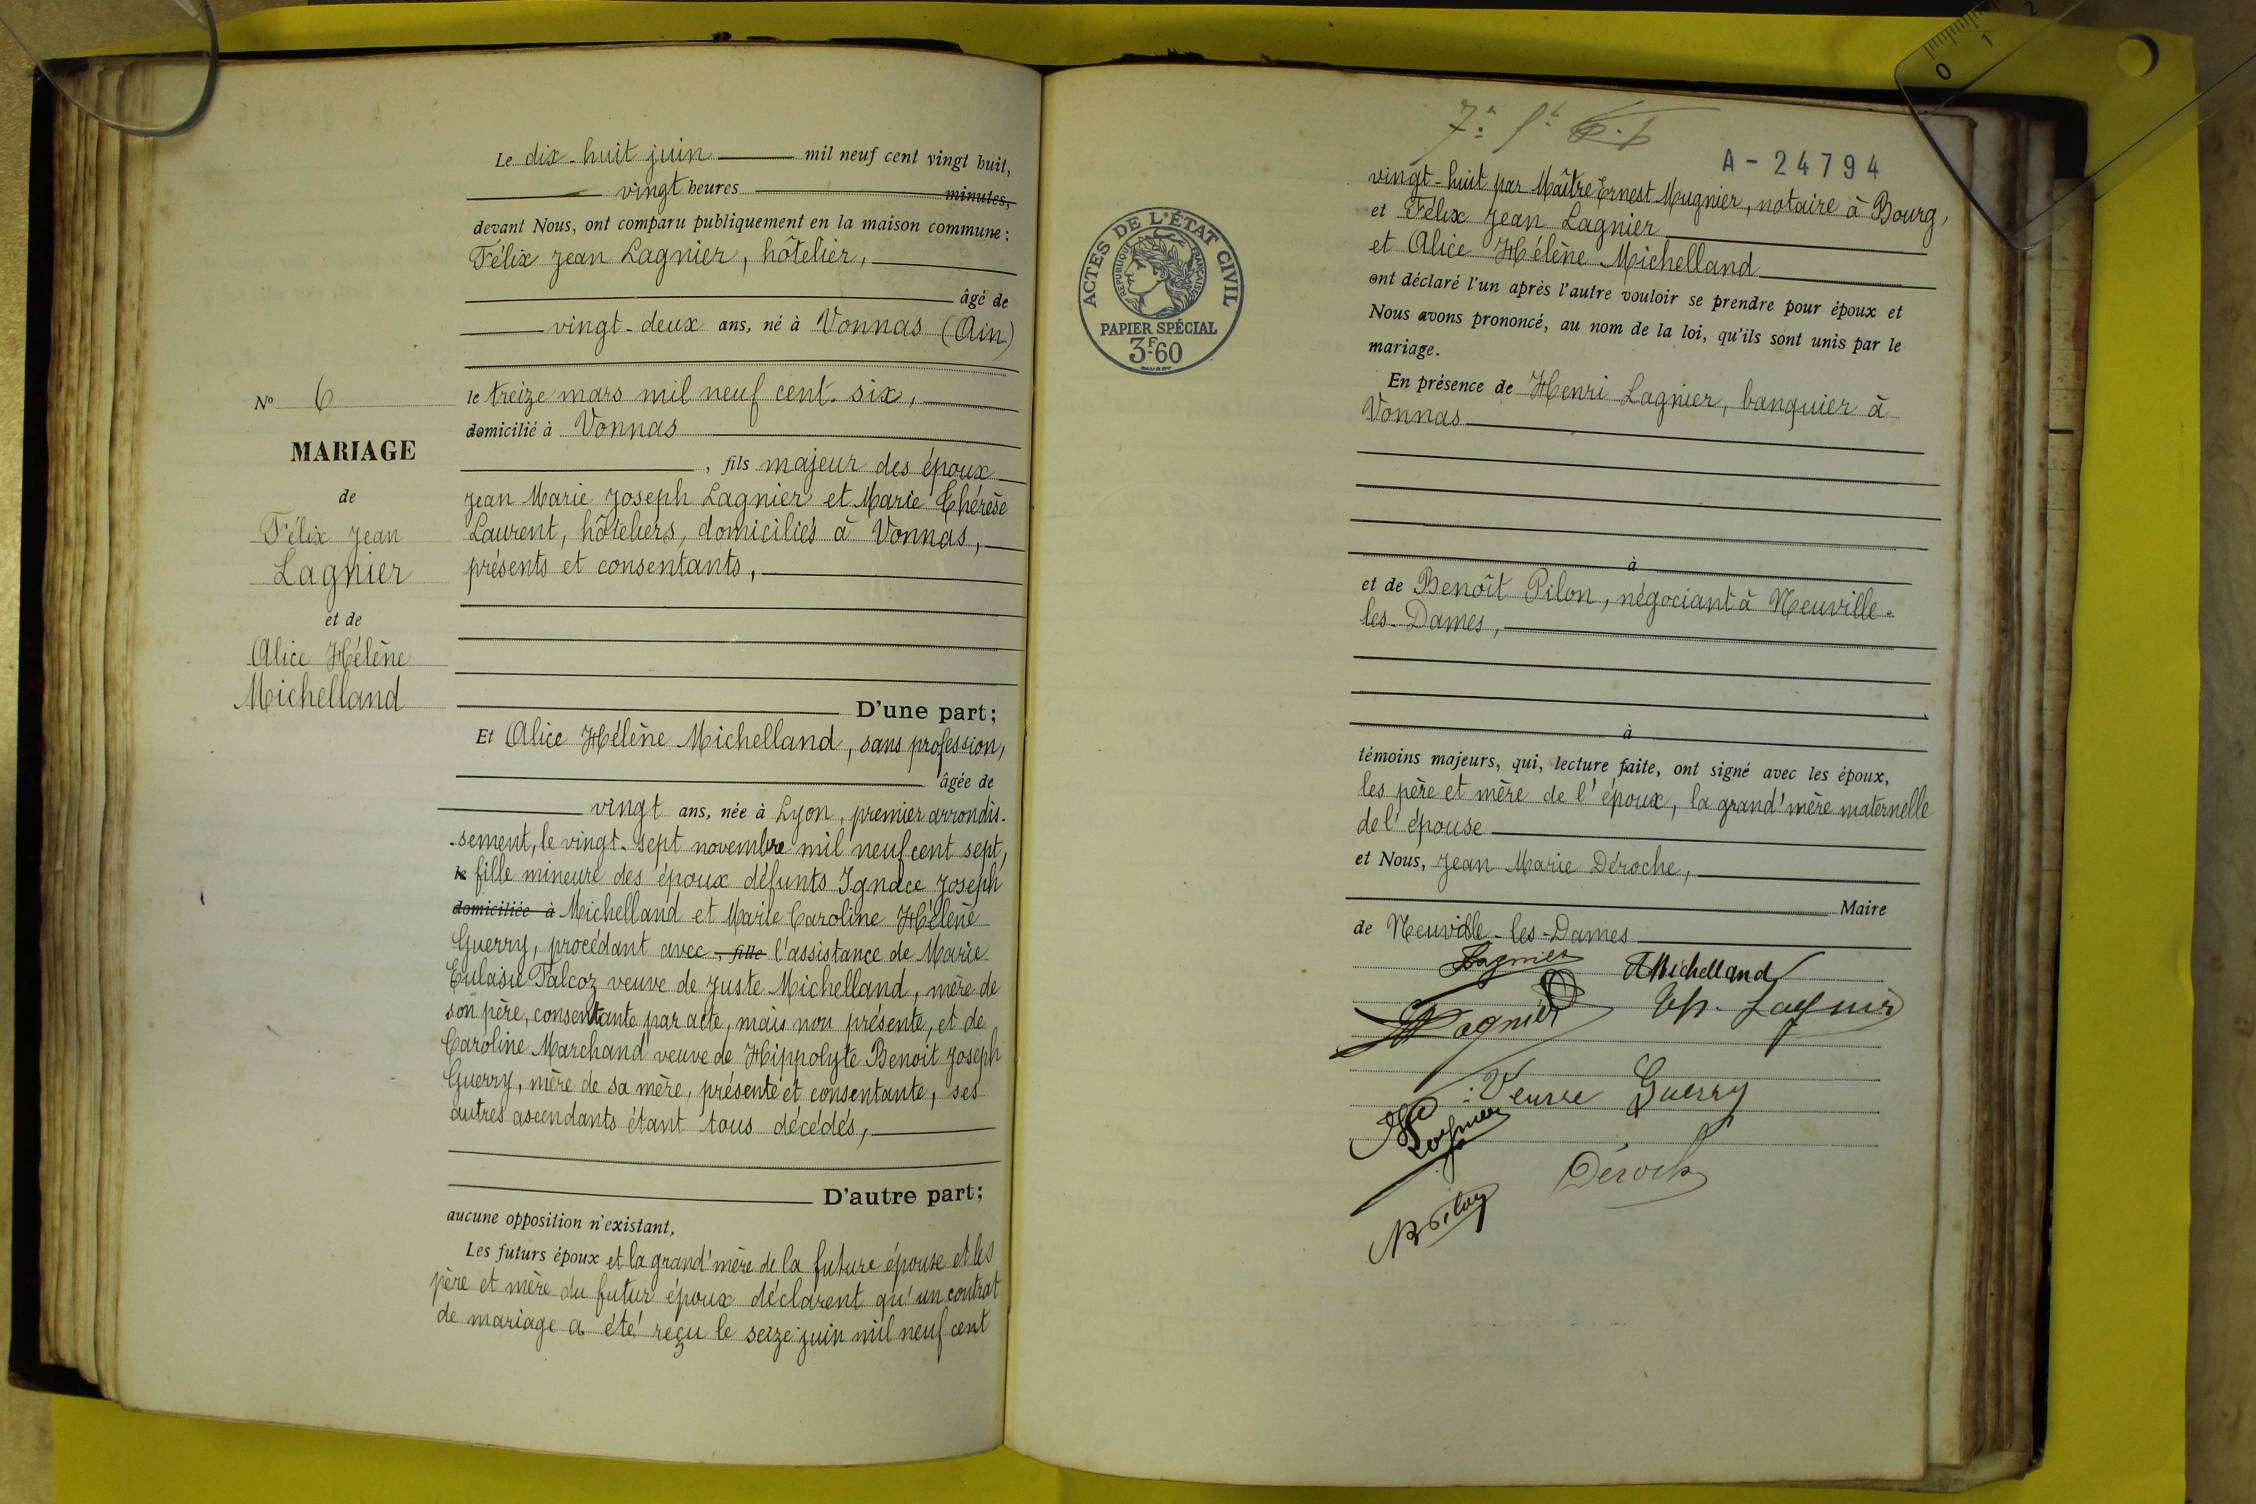 Le dix-huit juin mil neuf cent vingt huit,
vingt heures minutes,
devant Nous, ont comparu publiquement en la maison commune :
Félix Jean Lagnier, hôtelier,
âgé de
vingt-deux ans, né à Vonnas (Ain)
le treize mars mil neuf cent six,
domicilié à Vonnas
, fils majeur des époux
Jean Marie Joseph Lagnier et Marie Thérèse
Laurent, hôteliers, domiciliés à Vonnas,
présents et consentants,
D'une part;
Nº 6
MARIAGE
de
Félix Jean
Lagnier
et de
Alice Hélène
Michelland
Et Alice Hélène Michelland, sans profession,
âgée de
vingt ans, née à Lyon, premier arrondis-
-sement, le vingt-sept novembre mil neuf cent sept,
le fille mineure des époux défunts Ignace Joseph
domiciliée à Michelland et Marie Caroline Hélène
Guerry, procédant avec , fille l'assistance de Marie
Eulasie Falcoz veuve de Juste Michelland, mère de
son père, consentante par acte, mais non présente, et de
Caroline Marchand veuve de Hippolyte Benoit Joseph
Guerry, mère de sa mère, présente et consentante, ses
autres ascendants étant tous décédés,
D'autre part;
aucune opposition n'existant,
Les futurs époux et la grand'mère de la future épouse et les
père et mère du futur époux déclarent qu'un contrat
de mariage a été reçu le seize juin mil neuf cent
A-24794
ACTES DE L'ÉTAT CIVIL
RÉPUBLIQUE FRANÇAISE
PAPIER SPÉCIAL
3F60
vingt-huit par Maître Ernest Mugnier, notaire à Bourg,
et Félix Jean Lagnier
et Alice Hélène Michelland
ont déclaré l'un après l'autre vouloir se prendre pour époux et
Nous avons prononcé, au nom de la loi, qu'ils sont unis par le
mariage.
En présence de Henri Lagnier, banquier à
Vonnas
à
et de Benoît Pilon, négociant à Neuville-
les-Dames,
à
témoins majeurs, qui, lecture faite, ont signé avec les époux,
les père et mère de l'époux, la grand'mère maternelle
de l'épouse
et Nous, Jean Marie Déroche,
Maire
de Neuville-les-Dames
Lagnier AMichelland
Lagnier Th. Lagnier
Veuve Guerry
Lagnier
Déroche
B Pilon
0 1 2